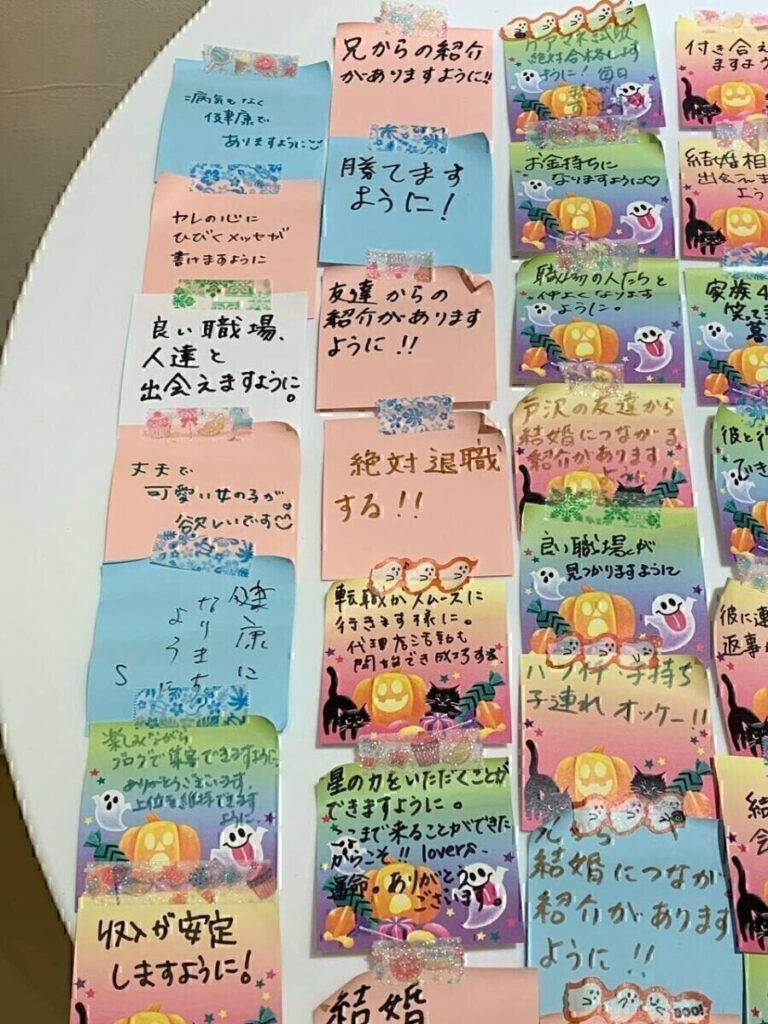 病気もなく
健康で
ありますように
ヤレの心に
ひびくメッセが
書けますように
良い職場、
人達と
出会えますように。
丈夫で
可愛い女の子が
欲しいです
健康に
なりますように
S
楽しみながら
ブログで集客できますように
ありがとうございます。
上位を維持できます
ように。
収入が安定
しますように!
兄からの紹介
がありますように!!
勝てます
ように!
友達からの
紹介があります
ように!!
絶対退職
する!!
転職がスムーズに
行きます様に。
代理店活動も
開始でき成功する
星の力をいただくことが
できますように。
ここまで来ることができた
からこそ!! lovers、
運命。ありがとう
ございます。
結婚
ケアマネ試験
絶対合格します
ように!毎日
お金持ちに
なりますように♡
職場の人たちと
仲よくなります
ように。
戸沢の友達から
結婚につながる
紹介があります
ように!!
良い職場が
見つかりますように
バツイチ・子持ち
子連れ オッケー!!
兄から
結婚につなが
紹介があります
ように!!
BOO!
付き合え
ますよう
結婚相
出会えま
よう
家族4
笑って
暮
彼と
でき
彼に連
返事が
結
会